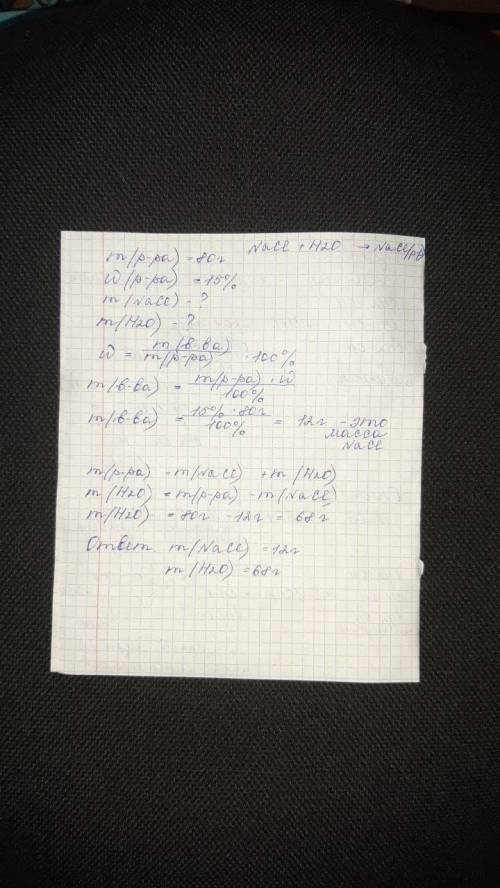 NaCl + H2O → NaCl(рв)
m(р-ра) = 80г
W(р-ра) = 15%
m(NaCl) - ?
m(H2O) - ?
W = m(в-ва) / m(р-ра) · 100%
m(в-ва) = m(р-ра) · W / 100%
m(в-ва) = 15% · 80г / 100% = 12г - это
масса
NaCl
m(р-ра) = m(NaCl) + m(H2O)
m(H2O) = m(р-ра) - m(NaCl)
m(H2O) = 80г - 12г = 68г
Ответ m(NaCl) = 12г
m(H2O) = 68г